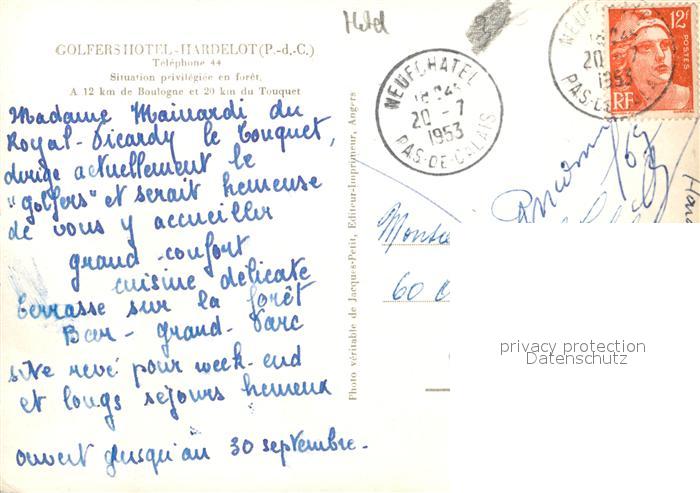 Hotel
GOLFERS HOTEL - HARDELOT (P.-d.-C.)
Téléphone 44
Situation privilégiée en forêt,
A 12 km de Boulogne et 20 km du Touquet
Madame Mainardi du
Royal-Picardy le Touquet,
dirige actuellement le
"golfers" et serait heureuse
de vous y accueillir
grand confort
cuisine délicate
terrasse sur la forêt
Bar - grand - Parc
site revé pour week-end
et longs séjours heureux
ouvert jusqu'au 30 septembre.
Photo véritable de Jacques-Petit, Editeur-Imprimeur, Angers
NEUFCHATEL
20 -7
1953
PAS-DE-CALAIS
12F
POSTES
RF
20 -7
1953
PAS-DE-CALAIS
60
privacy protection
Datenschutz